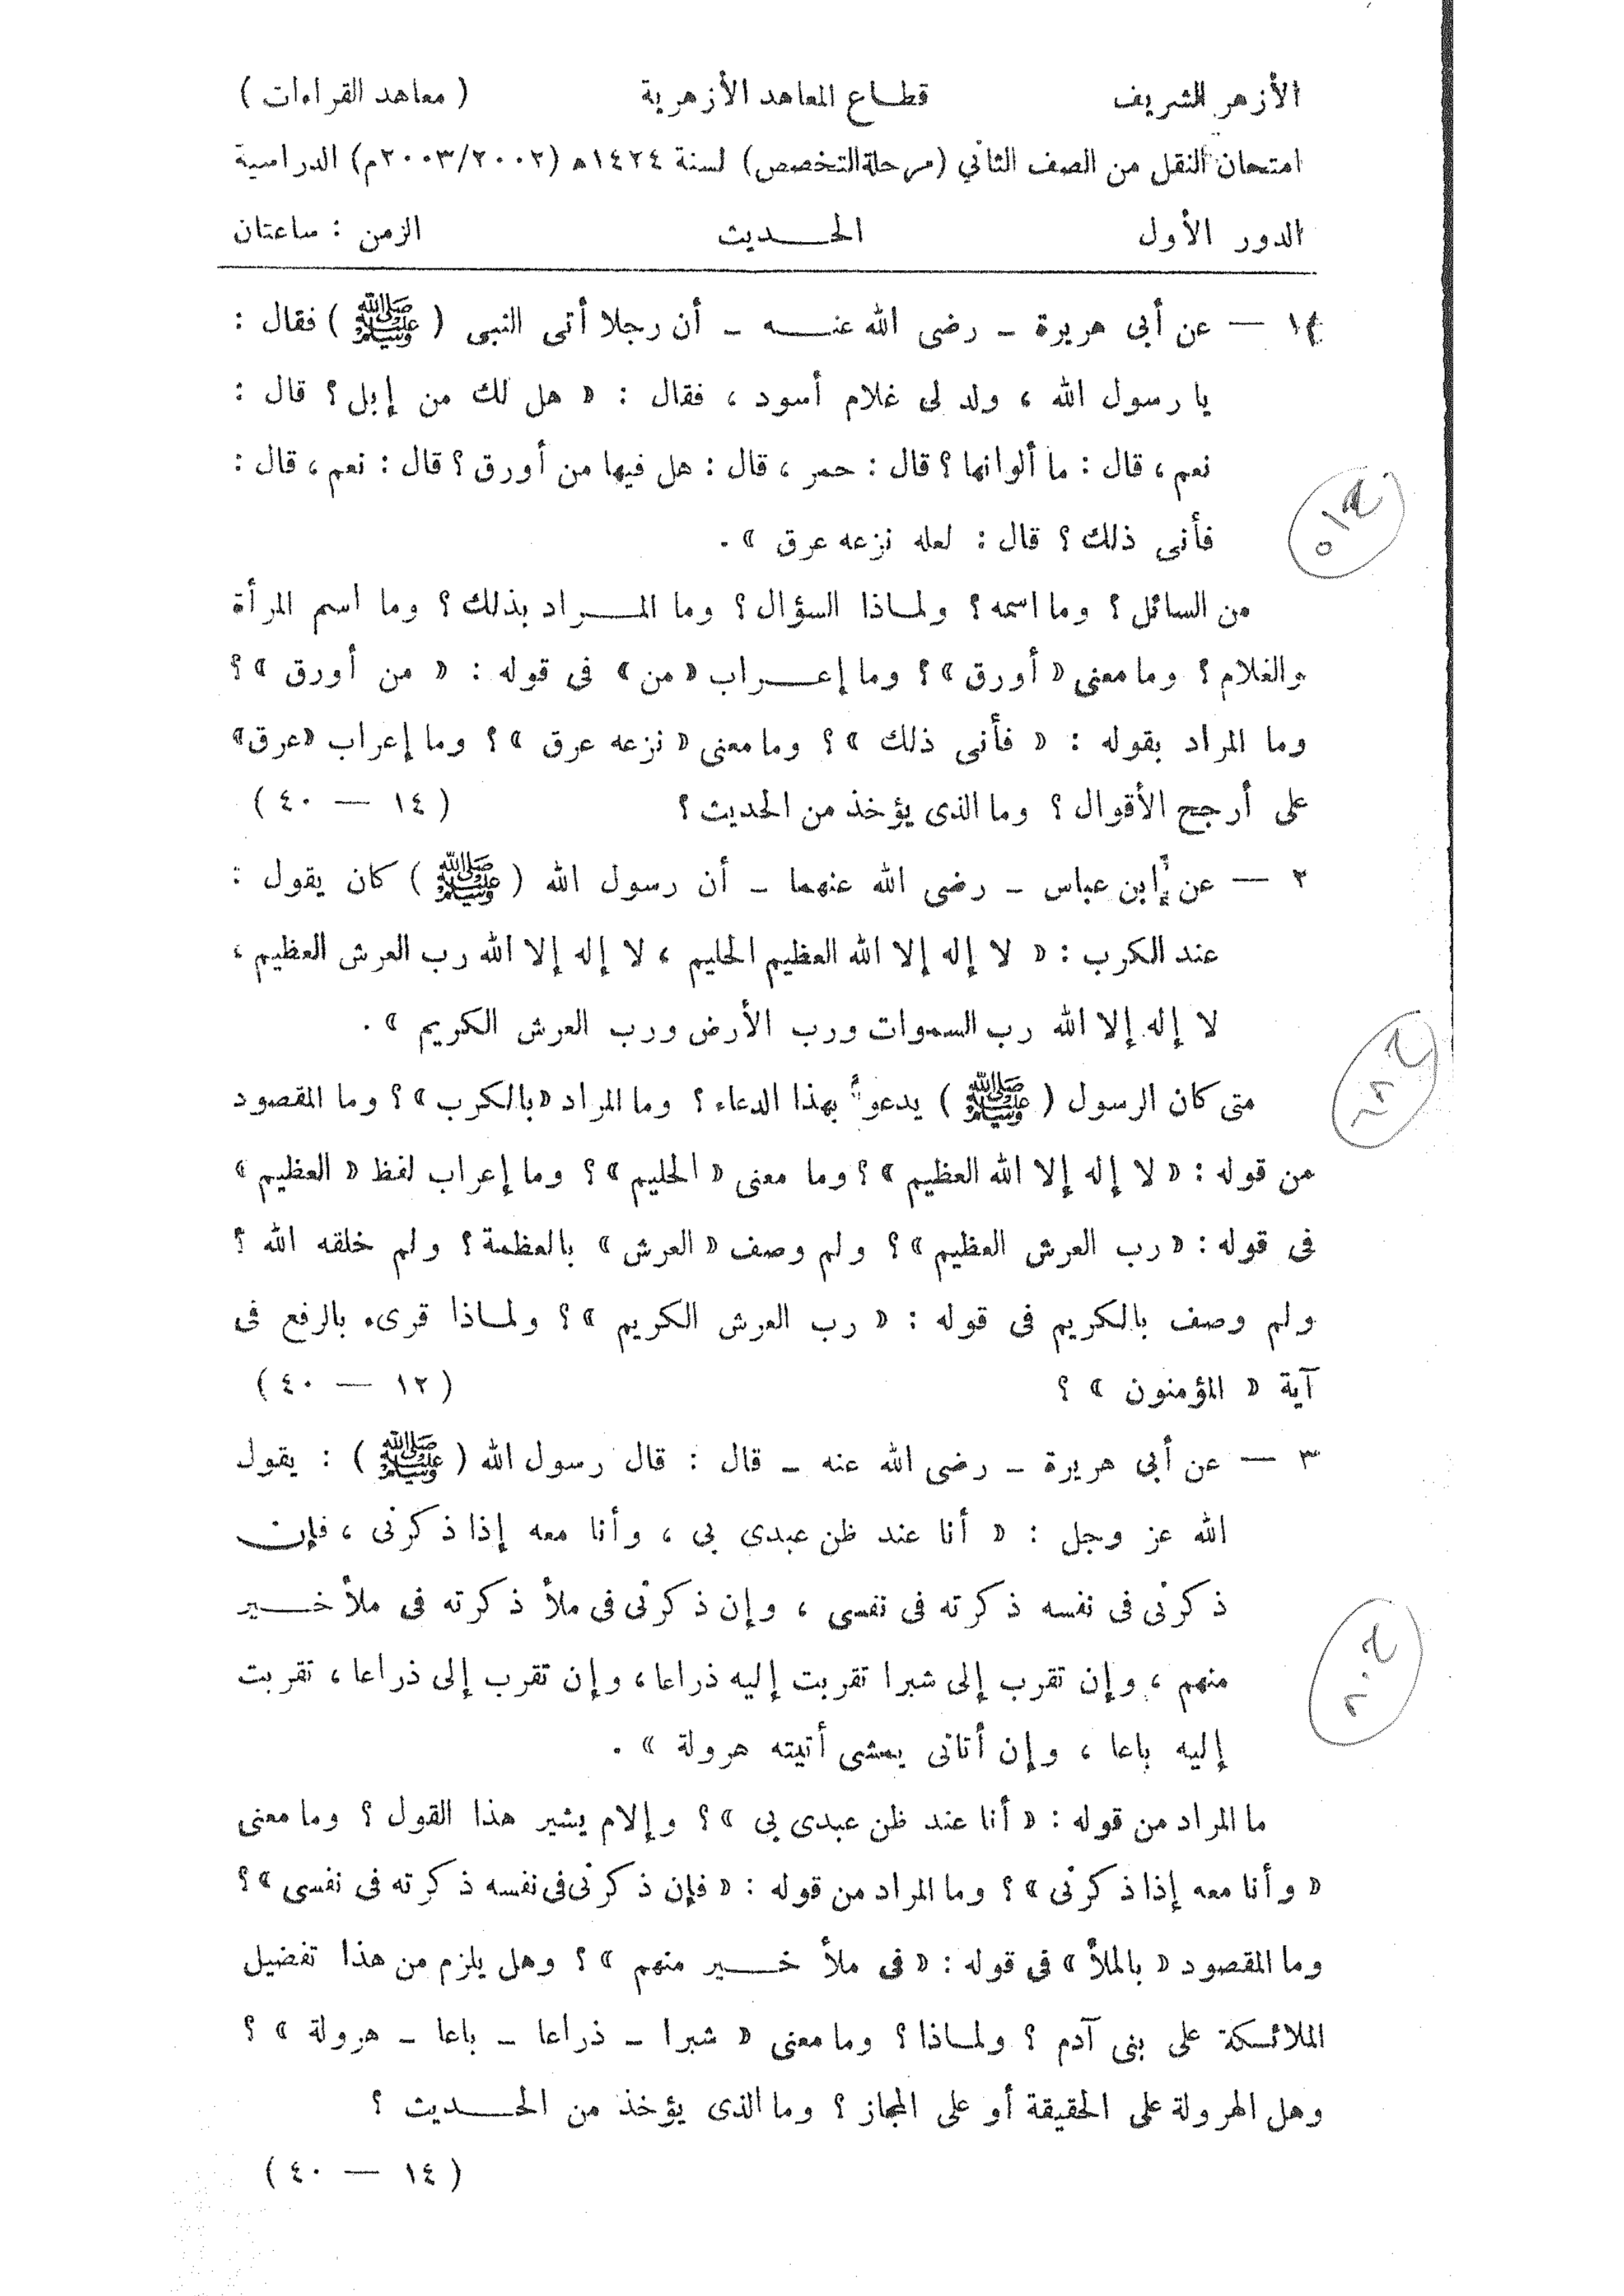 الأزهر الشريف قطاع المعاهد الأزهرية ( معاهد القراءات )
امتحان النقل من الصف الثاني (مرحلة التخصص) لسنة ١٤٢٤ه (٢٠٠٣/٢٠٠٢م) الدراسية
الدور الأول الحديث الزمن : ساعتان
١ — عن أبى هريرة - رضى الله عنه - أن رجلا أتى النبى ( ﷺ ) فقال :
يا رسول الله ، ولد لى غلام أسود ، فقال : « هل لك من إبل ؟ قال :
نعم ، قال : ما ألوانها ؟ قال : حمر ، قال : هل فيها من أورق ؟ قال : نعم ، قال :
فأنى ذلك ؟ قال : لعله نزعه عرق » .
من السائل ؟ وما اسمه ؟ ولماذا السؤال ؟ وما المراد بذلك ؟ وما اسم المرأة
والغلام ؟ وما معنى « أورق » ؟ وما إعراب « من » فى قوله : « من أورق » ؟
وما المراد بقوله : « فأنى ذلك » ؟ وما معنى « نزعه عرق » ؟ وما إعراب «عرق»
على أرجح الأقوال ؟ وما الذى يؤخذ من الحديث ؟ ( ١٤ — ٤٠ )
٢ — عن ابن عباس - رضى الله عنهما - أن رسول الله ( ﷺ ) كان يقول :
عند الكرب : « لا إله إلا الله العظيم الحليم ، لا إله إلا الله رب العرش العظيم ،
لا إله إلا الله رب السموات ورب الأرض ورب العرش الكريم » .
متى كان الرسول ( ﷺ ) يدعو بهذا الدعاء ؟ وما المراد «بالكرب» ؟ وما المقصود
من قوله : « لا إله إلا الله العظيم » ؟ وما معنى « الحليم » ؟ وما إعراب لفظ « العظيم »
فى قوله : « رب العرش العظيم » ؟ ولم وصف « العرش » بالعظمة ؟ ولم خلقه الله ؟
ولم وصف بالكريم فى قوله : « رب العرش الكريم » ؟ ولماذا قرىء بالرفع فى
آية « المؤمنون » ؟ ( ١٢ — ٤٠ )
٣ — عن أبى هريرة - رضى الله عنه - قال : قال رسول الله ( ﷺ ) : يقول
الله عز وجل : « أنا عند ظن عبدى بى ، وأنا معه إذا ذكرنى ، فإن
ذكرنى فى نفسه ذكرته فى نفسى ، وإن ذكرنى فى ملأ ذكرته فى ملأ خير
منهم ، وإن تقرب إلى شبرا تقربت إليه ذراعا ، وإن تقرب إلى ذراعا ، تقربت
إليه باعا ، وإن أتانى يمشى أتيته هرولة » .
ما المراد من قوله : « أنا عند ظن عبدى بى » ؟ وإلام يشير هذا القول ؟ وما معنى
« وأنا معه إذا ذكرنى » ؟ وما المراد من قوله : « فإن ذكرنى فى نفسه ذكرته فى نفسى » ؟
وما المقصود « بالملأ » فى قوله : « فى ملأ خير منهم » ؟ وهل يلزم من هذا تفضيل
الملائكة على بنى آدم ؟ ولماذا ؟ وما معنى « شبرا - ذراعا - باعا - هرولة » ؟
وهل الهرولة على الحقيقة أو على المجاز ؟ وما الذى يؤخذ من الحديث ؟
( ١٤ — ٤٠ )